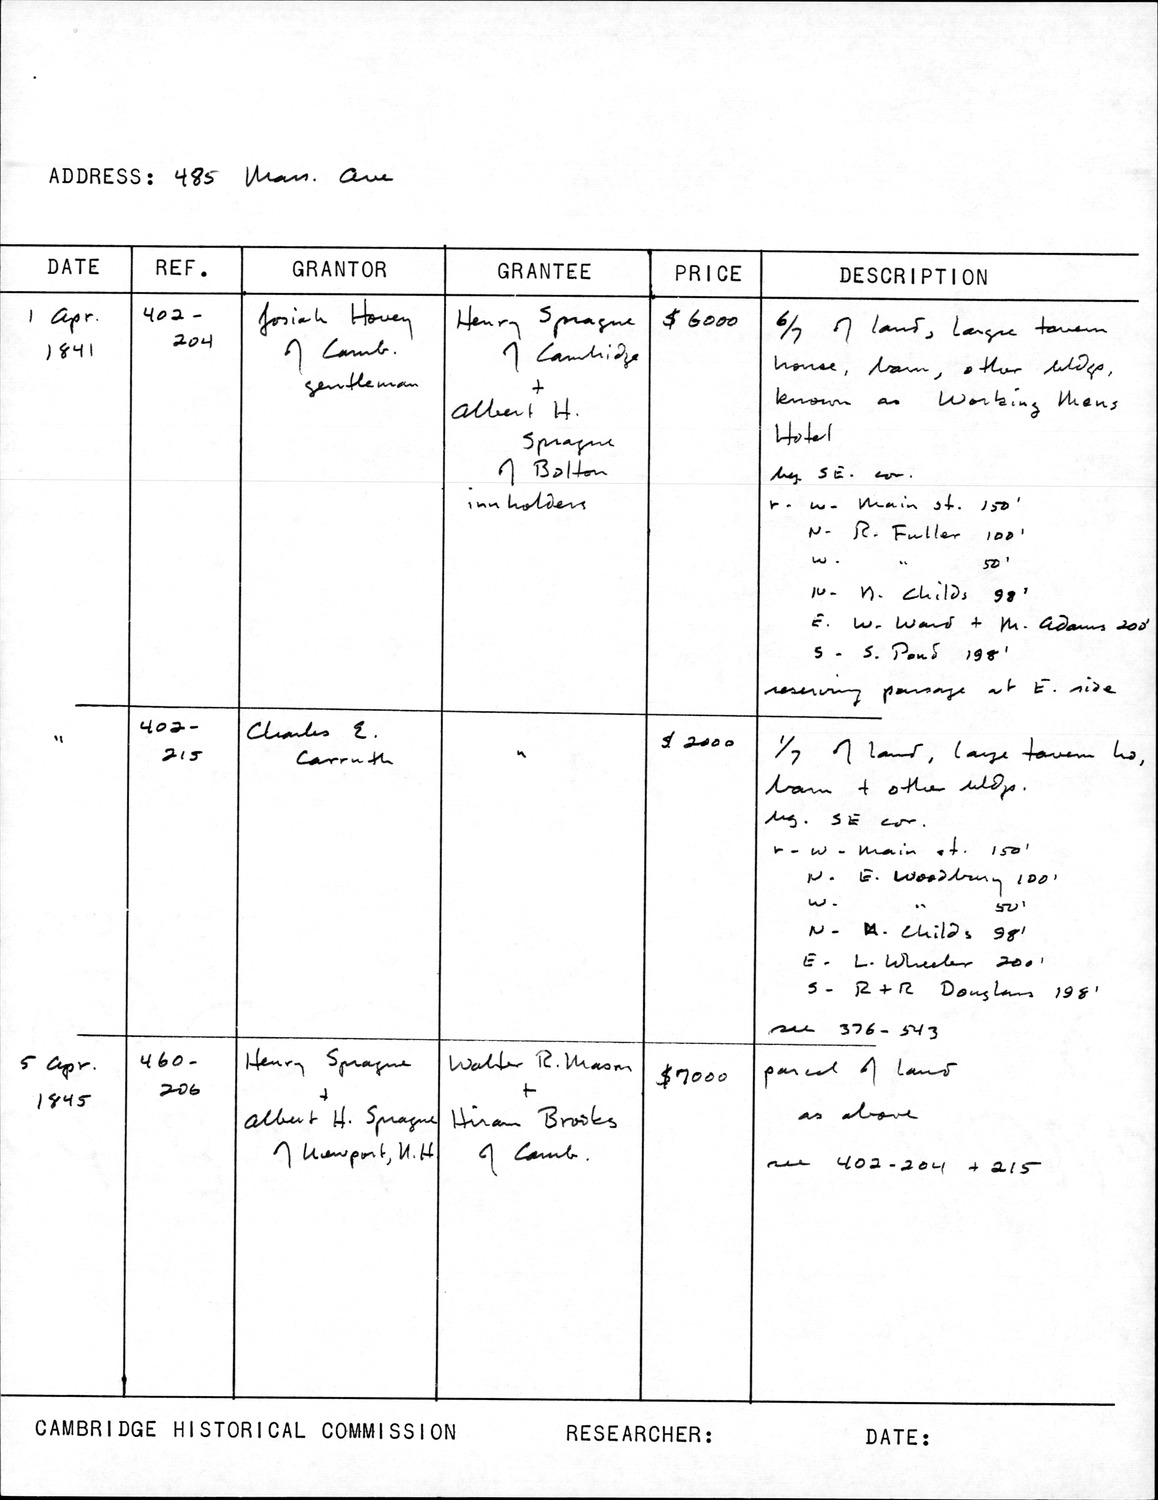 ADDRESS: 485 Mass. Ave
DATE REF. GRANTOR GRANTEE PRICE DESCRIPTION
1 Apr.
1841
402-
204
Josiah Hovey
of Camb.
gentleman
Henry Sprague
of Cambridge
+
Albert H.
Sprague
of Bolton
innholders
$6000
6/7 of land, large tavern
house, barn, other bldgs,
known as Working Mens
Hotel
beg SE. cor.
r - w - Main st. 150'
N - R. Fuller 100'
W. " 50'
N - N. Childs 98'
E. W. Ward + M. Adams 200'
S - S. Pond 198'
reserving passage at E. side
"
402-
215
Charles E.
Carruth
"
$2000
1/7 of land, large tavern ho,
barn + other bldgs.
beg. SE cor.
r - w - Main st. 150'
N. E. Woodbury 100'
W. " 50'
N - N. Childs 98'
E - L. Wheeler 200'
S - R + R Douglass 198'
see 376-543
5 Apr.
1845
460-
206
Henry Sprague
+
Albert H. Sprague
of Newport, N.H.
Walter R. Mason
+
Hiram Brooks
of Camb.
$7000
parcel of land
as above
see 402-204 + 215
CAMBRIDGE HISTORICAL COMMISSION RESEARCHER: DATE: